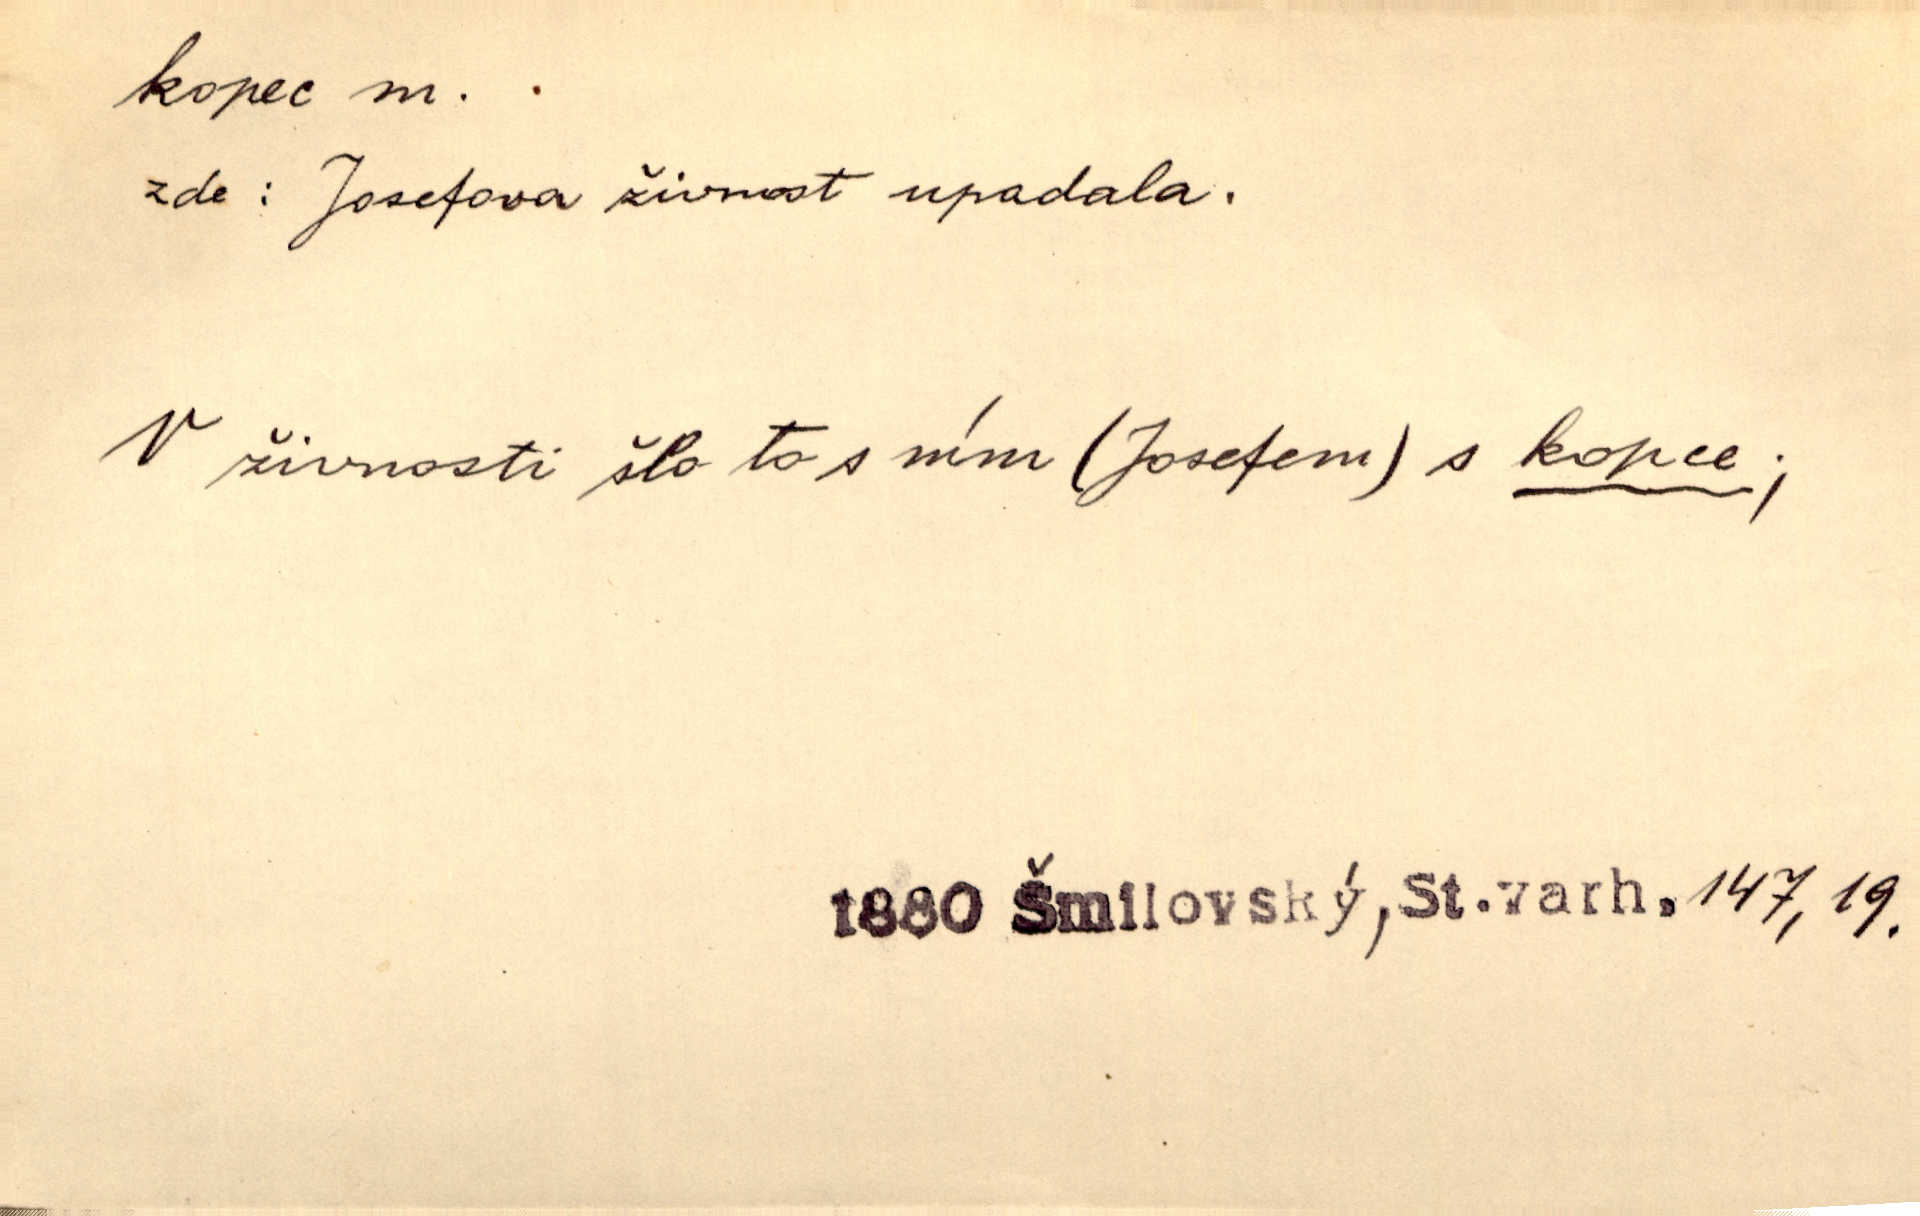 kopec m.
zde: Josefova živnost upadala.
V živnosti šlo to s ním (Josefem) s kopce;
1880 Šmilovský, St.varh. 147, 19.